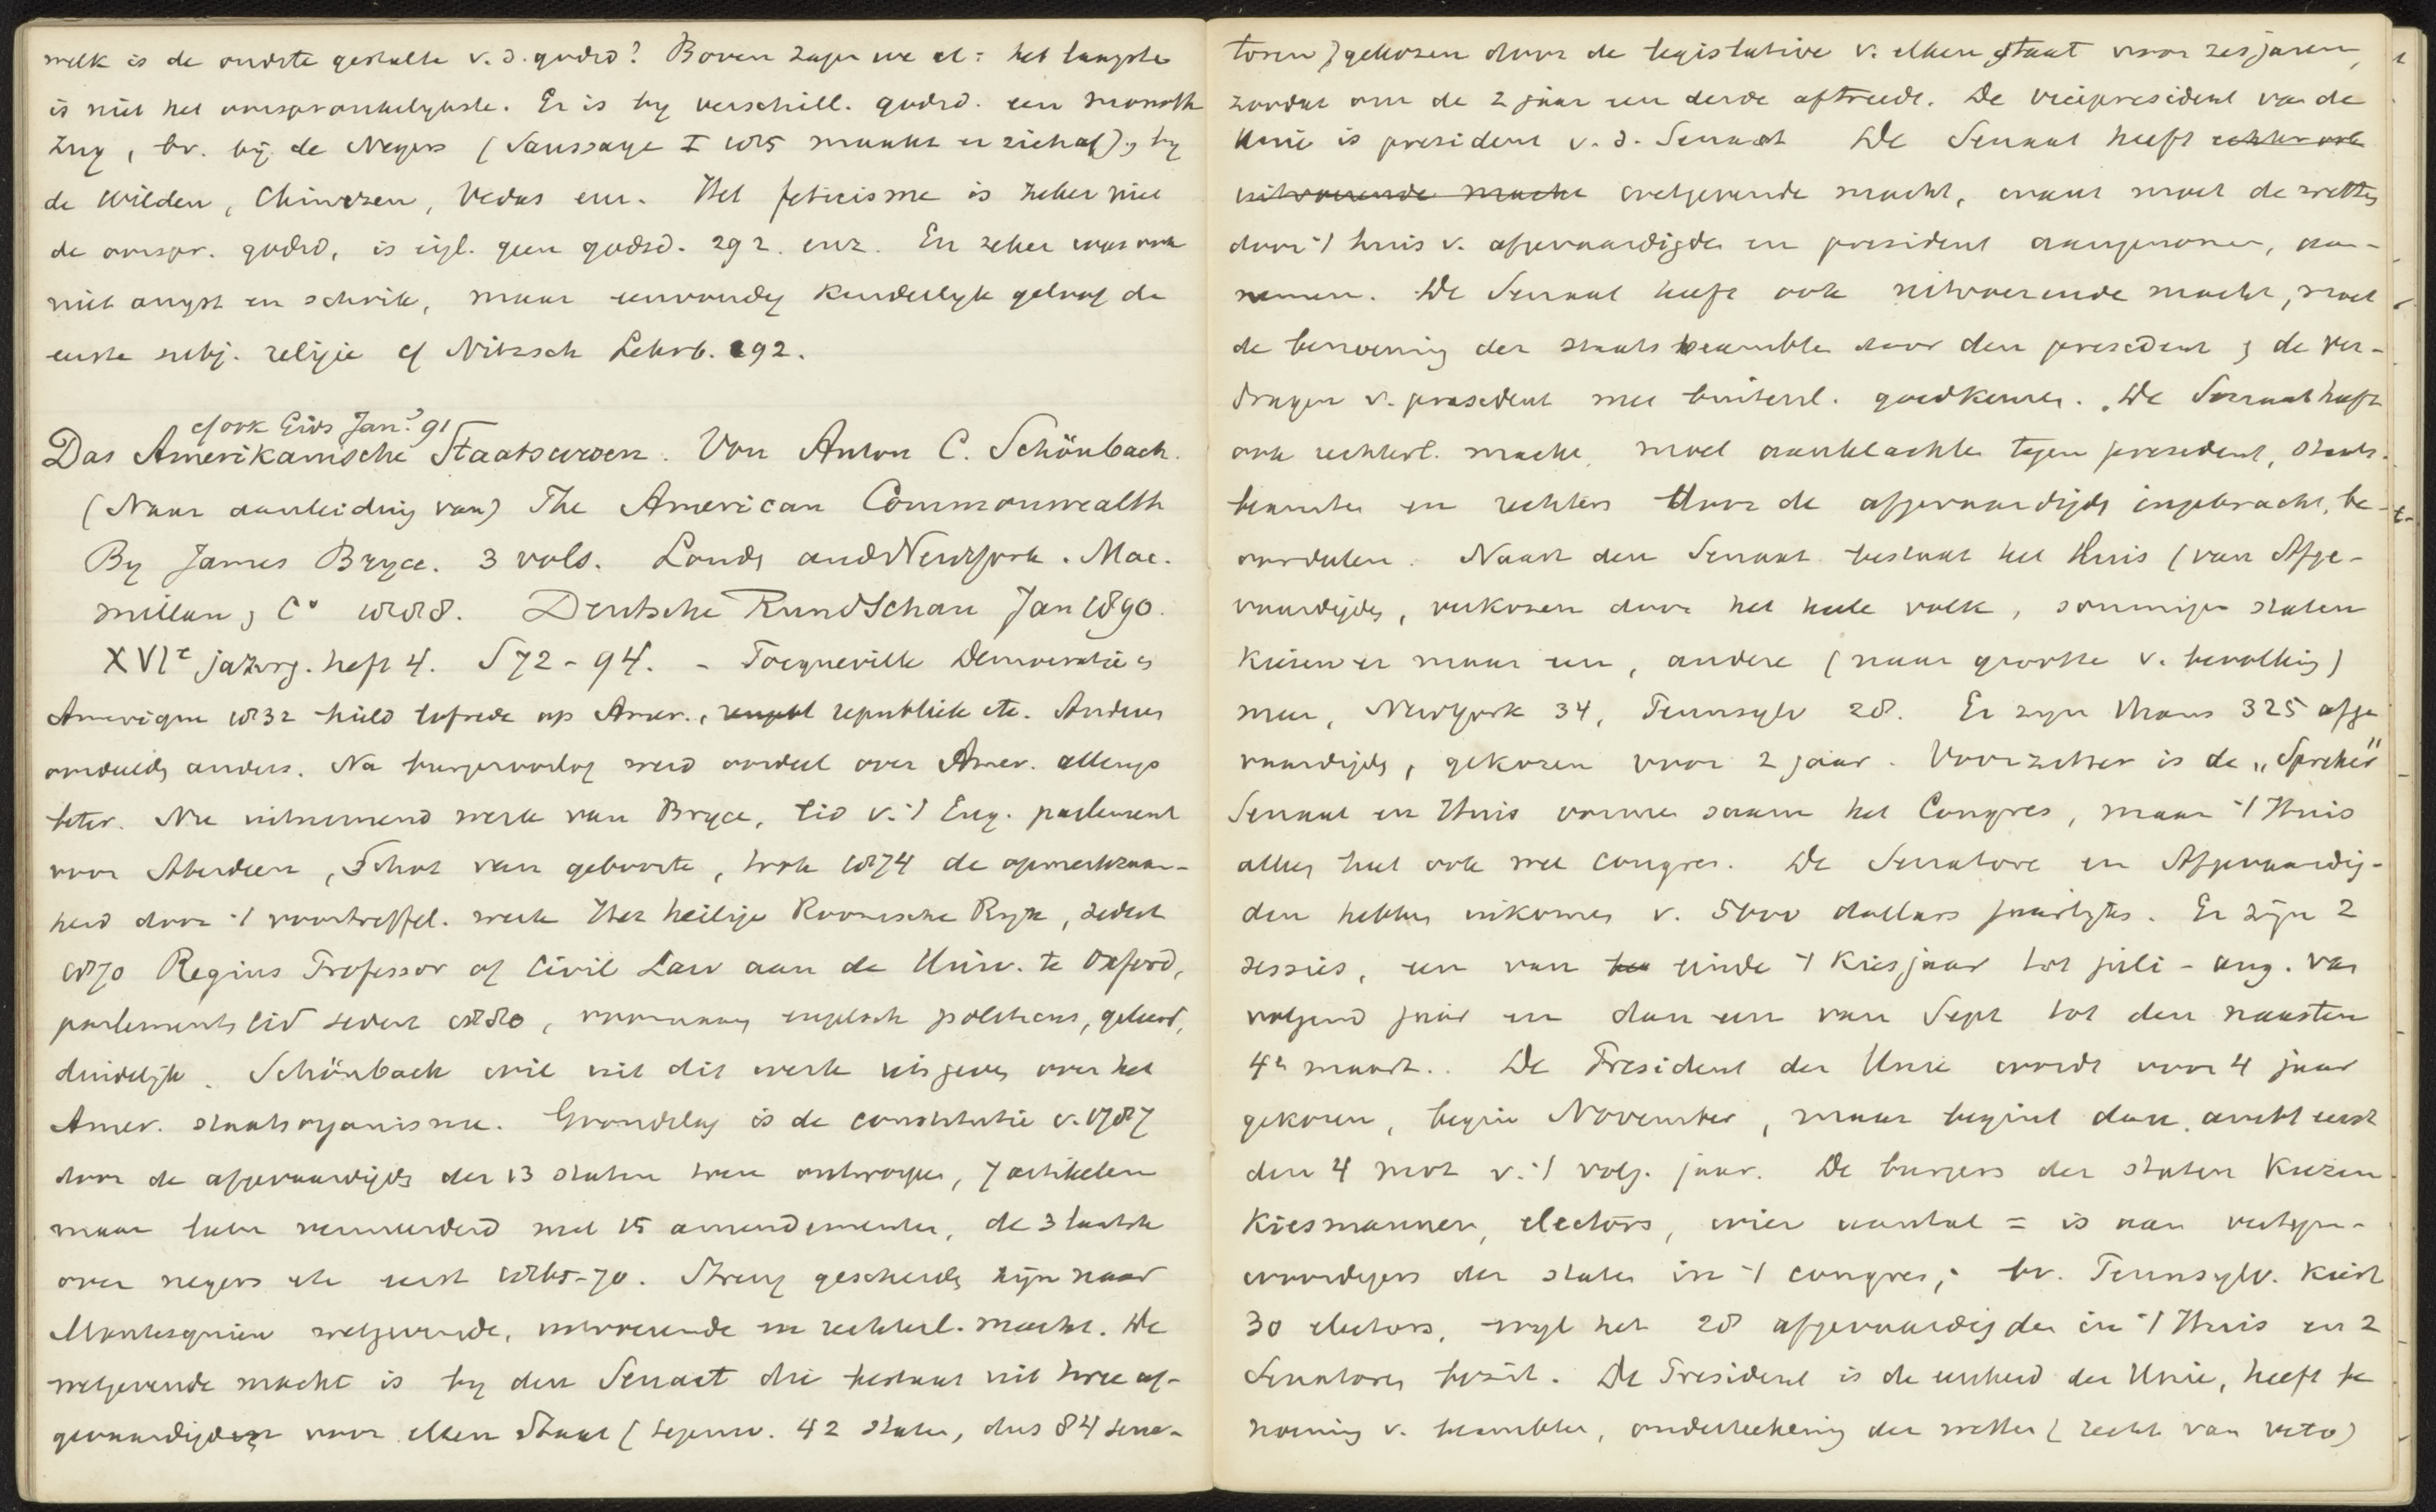 welk is de oudste gestalte v. d. godsd? Boven zagen we al: het laagste
is niet het oorspronkelykste. Er is by verschill. godsd. een monoth.
trek, bv. bij de Negers (Saussaye I 185 maakt er zich af), by
de Wilden, Chineezen, Vedas enz. Het feticisme is zeker niet
de oorspr. godsd, is eigl. geen godsd. 292. enz. En zeker was ook
niet angst en schrik, maar eenvoudig kinderlyk geloof de
eerste subj. religie cf Nitzsch Lehrb. 92.
cf ook Gids Jan. 91
Das Amerikanische Staatswesen. Von Anton C. Schönbach.
(Naar aanleiding van) The American Commonwealth
By James Bryce. 3 vols. London and NewYork. Mac-
millan & Co 1888. Deutsche Rundschau Jan 1890.
XVIe jahrg. heft 4. S 72-94. - Tocqueville Democratie en
Amerique 1832 hield lofrede op Amer., republiek etc. Anderen
oordeelden anders. Na burgeroorlog werd oordeel over Amer. allengs
beter. Nu uitnemend werk van Bryce, lid v. 't Eng. parlement
voor Aberdeen, Schot van geboorte, trok 1874 de opmerkzaam-
heid door 't voortreffel. werk Het heilige Roomsche Ryk, sedert
1870 Regius Professor of Civil Law aan de Univ. te Oxford,
parlementslid sedert 1880, voornaam engelsch politicus, geleerd,
duidelijk. Schönbach wil uit dit werk iets geven over het
Amer. staatsorganisme. Grondslag is de constitutie v. 1787
door de afgevaardigden der 13 staten toen ontworpen, 7 artikelen
maar later vermeerderd met 15 amendementen, de 3 laatste
over negers etc eerst 1865-70. Streng gescheiden zijn naar
Montesquieu wetgevende, uitvoerende en rechterl. macht. De
wetgevende macht is by den Senaat die bestaat uit twee af-
gevaardigden voor elken Staat (tegenw. 42 staten, dus 84 sena-
toren) gekozen door de legislative v. elken staat voor zes jaren,
zoodat om de 2 jaar een derde aftreedt. De vicepresident van de
Unie is president v. d. Senaat De Senaat heeft echter ook
uitvoerende macht wetgevende macht, want moet de wetten
door 't huis v. afgevaardigden en president aangenomen, aan-
nemen. De Senaat heeft ook uitvoerende macht, moet
de benoeming der staatsbeambten door den president & de ver-
dragen v. president met buitenl. goedkeuren. De Senaat heeft
ook rechterl. macht, moet aanklachten tegen president, staats-
beambten en rechters door de afgevaardigden ingebracht, be-
oordeelen. Naast den Senaat bestaat het Huis (van Afge-
vaardigden, verkozen door het heele volk, sommige staten
kiezen er maar een, andere (naar grootte v. bevolking)
meer, NewYork 34, Pennsylv 28. Er zyn thans 325 afge
vaardigden, gekozen voor 2 jaar. Voorzitter is de „Spreker"
Senaat en Huis vormen saam het Congres, maar 't Huis
alleen heet ook wel congres. De Senatoren en Afgevaardig-
den hebben inkomen v. 5000 dollars jaarlyks. Er zijn 2
sessies, een van einde 't kiesjaar tot juli - aug. van
volgend jaar en dan een van Sept tot den naasten
4n maart.. De President der Unie wordt voor 4 jaar
gekozen, begin November, maar begint dan ambt eerst
den 4 mrt v. 't volg. jaar. De burgers der staten kiezen
kiesmannen, electors, wier aantal = is aan vertegen-
woordigers der staten in 't congres; bv. Pennsylv. kiest
30 electors, wyl het 28 afgevaardigden in 't Huis en 2
Senatoren bezit. De President is de eenheid der Unie, heeft be
noeming v. beambten, onderteekening der wetten (recht van veto)